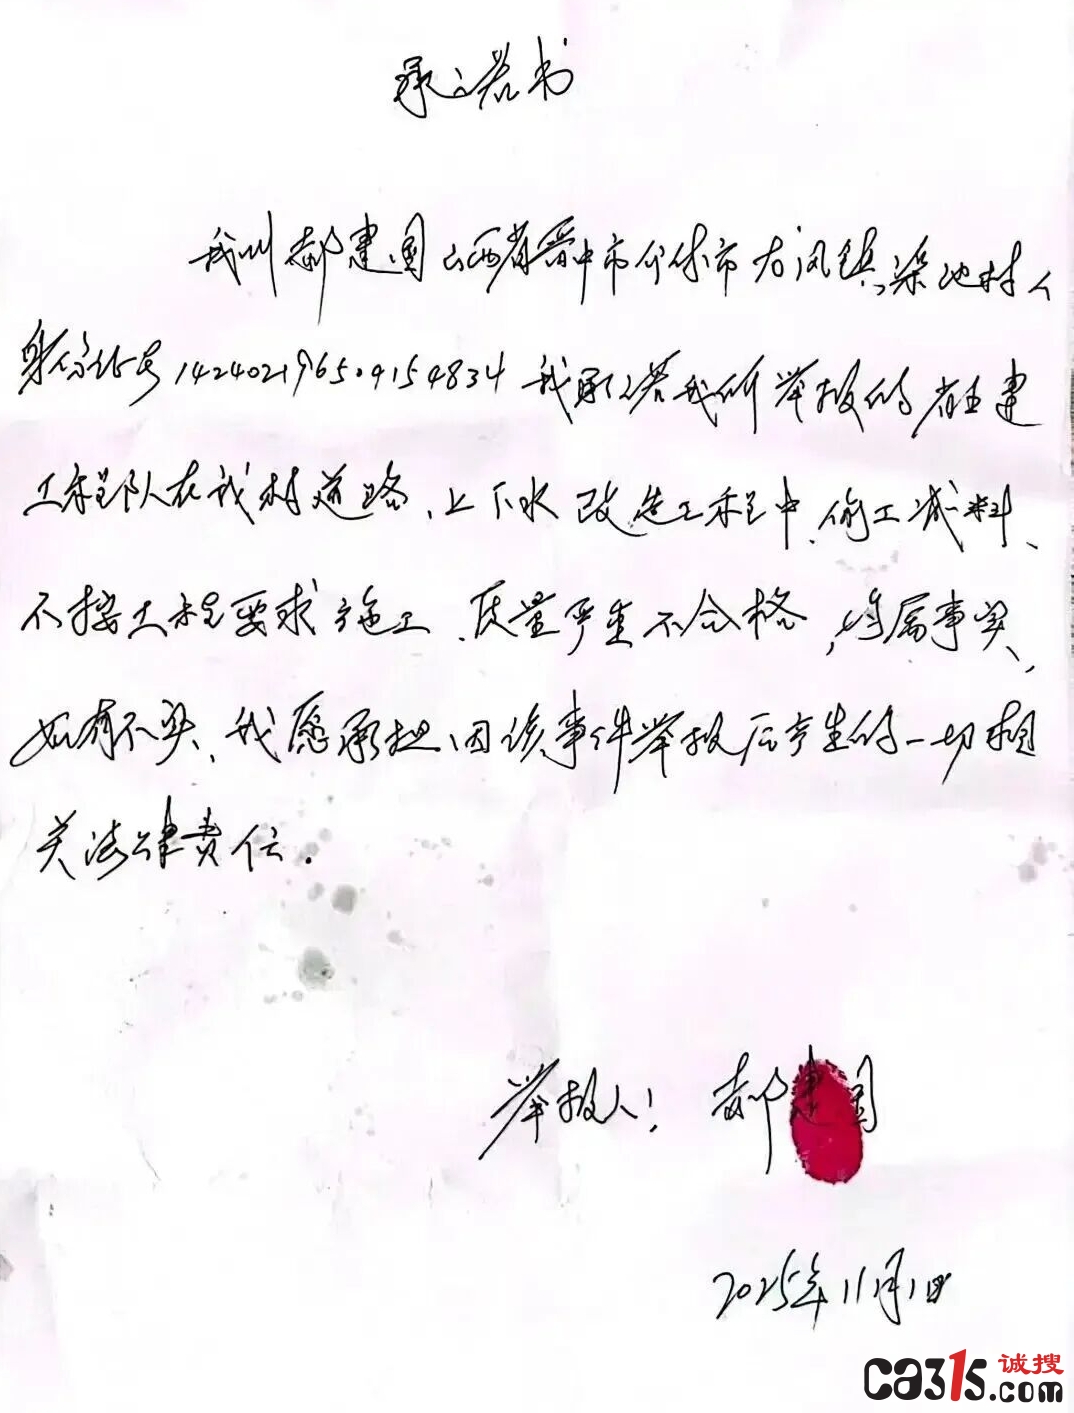 承诺书
我叫郝建国山西省晋中市介休市龙凤镇渠池村人
身份证号142402196509154834我承诺我所举报的省建
工程队在我村道路、上下水改造工程中、偷工减料、
不按工程要求施工、质量严重不合格，均属事实、
如有不实、我愿承担因该事件举报后产生的一切相
关法律责任.
举报人: 郝建国
2025年11月1日
ca315诚搜.com